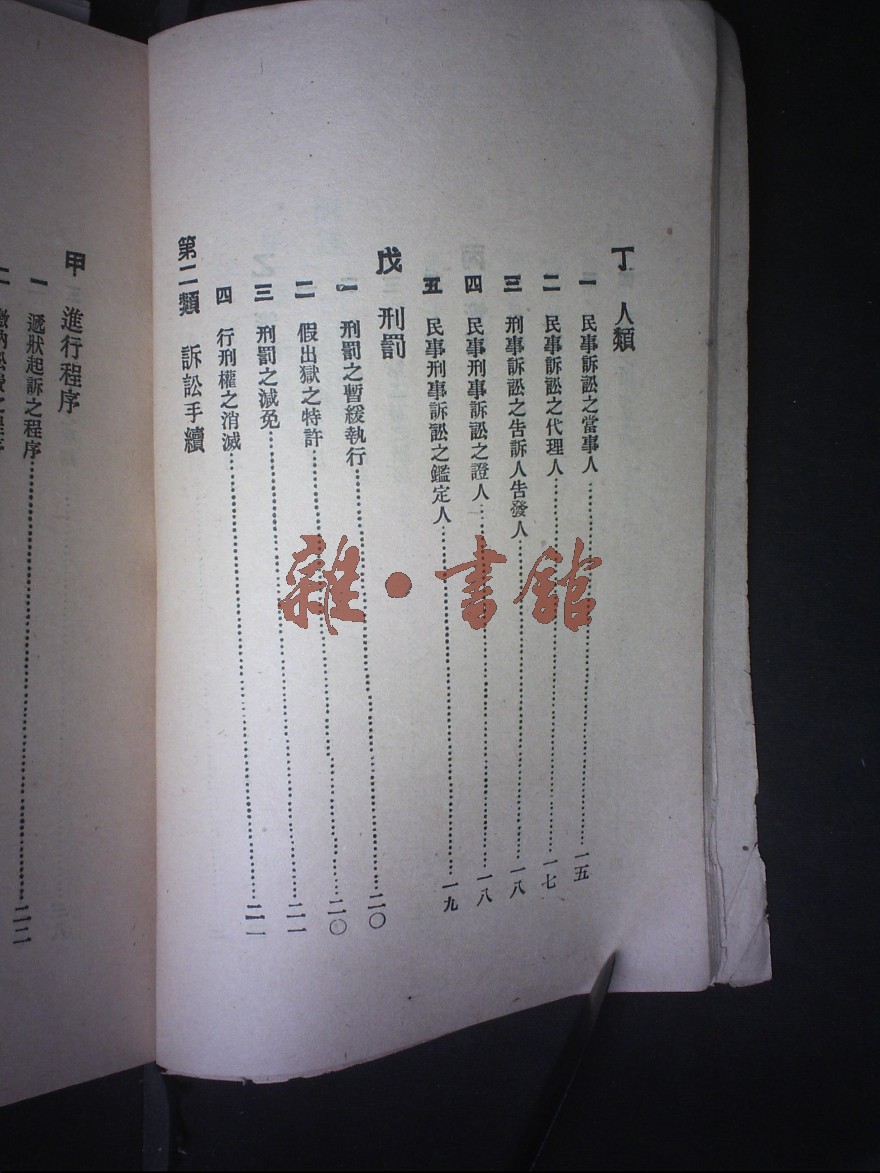 丁 人類
一 民事訴訟之當事人……一五
二 民事訴訟之代理人……一七
三 刑事訴訟之告訴人告發人……一八
四 民事刑事訴訟之證人……一八
五 民事刑事訴訟之鑑定人……一九
戊 刑罰
一 刑罰之暫緩執行……二〇
二 假出獄之特許……二〇
三 刑罰之減免……二一
四 行刑權之消滅……二一
第二類 訴訟手續
甲 進行程序
一 遞狀起訴之程序……二二
雜·書館